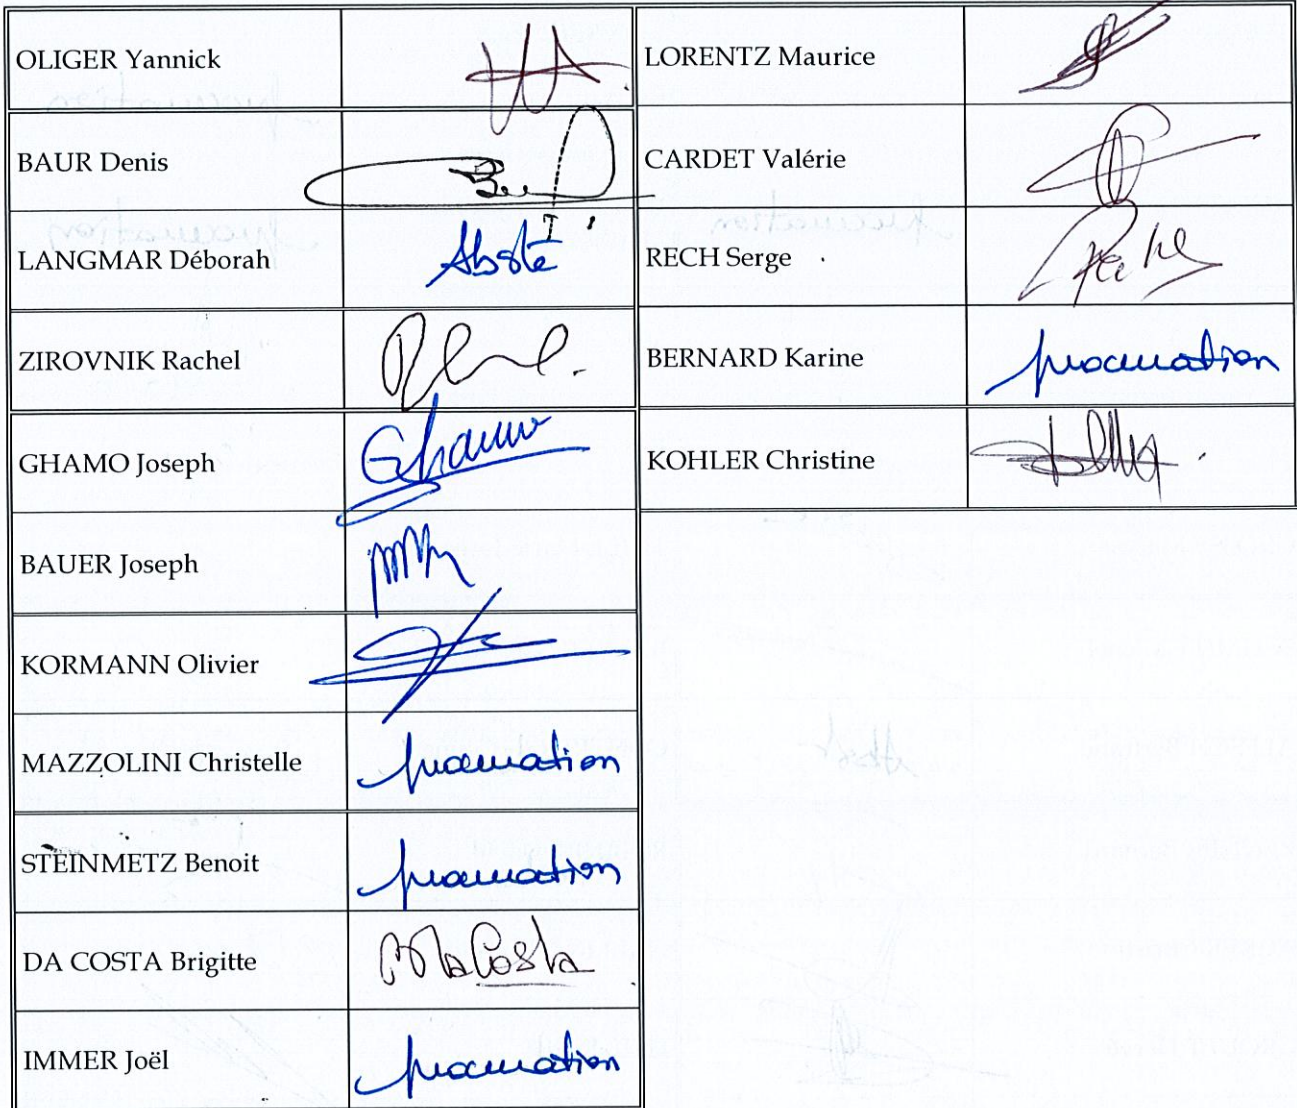 OLIGER Yannick
BAUR Denis
LANGMAR Déborah
ZIROVNIK Rachel
GHAMO Joseph Ghamo
BAUER Joseph
KORMANN Olivier
MAZZOLINI Christelle procuration
STEINMETZ Benoit procuration
DA COSTA Brigitte Da Costa
IMMER Joël procuration
LORENTZ Maurice
CARDET Valérie
RECH Serge
BERNARD Karine procuration
KOHLER Christine